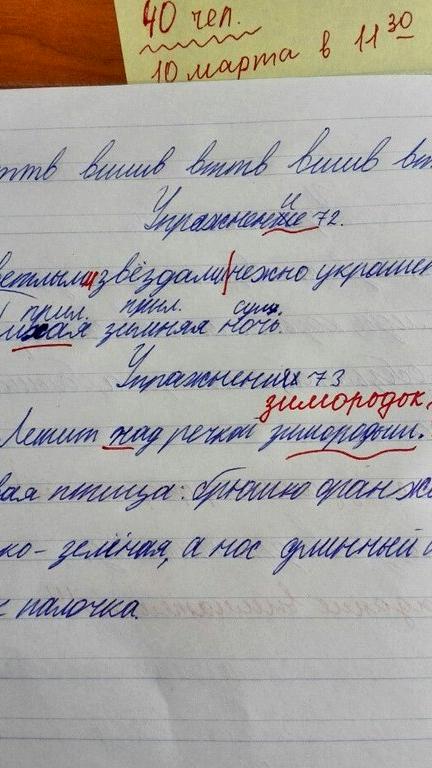 40 чел.
10 марта в 11 30
вшив вттв вшив
Упражнение 72.
звёздами нежно украшен
прил. прил. сущ.
тихая зимняя ночь.
Упражнения 73
зимородок.
Летит над речкой зимородын.
вая птица: брюшко оранж
ко-зелёная, а нос длинный
к палочка.